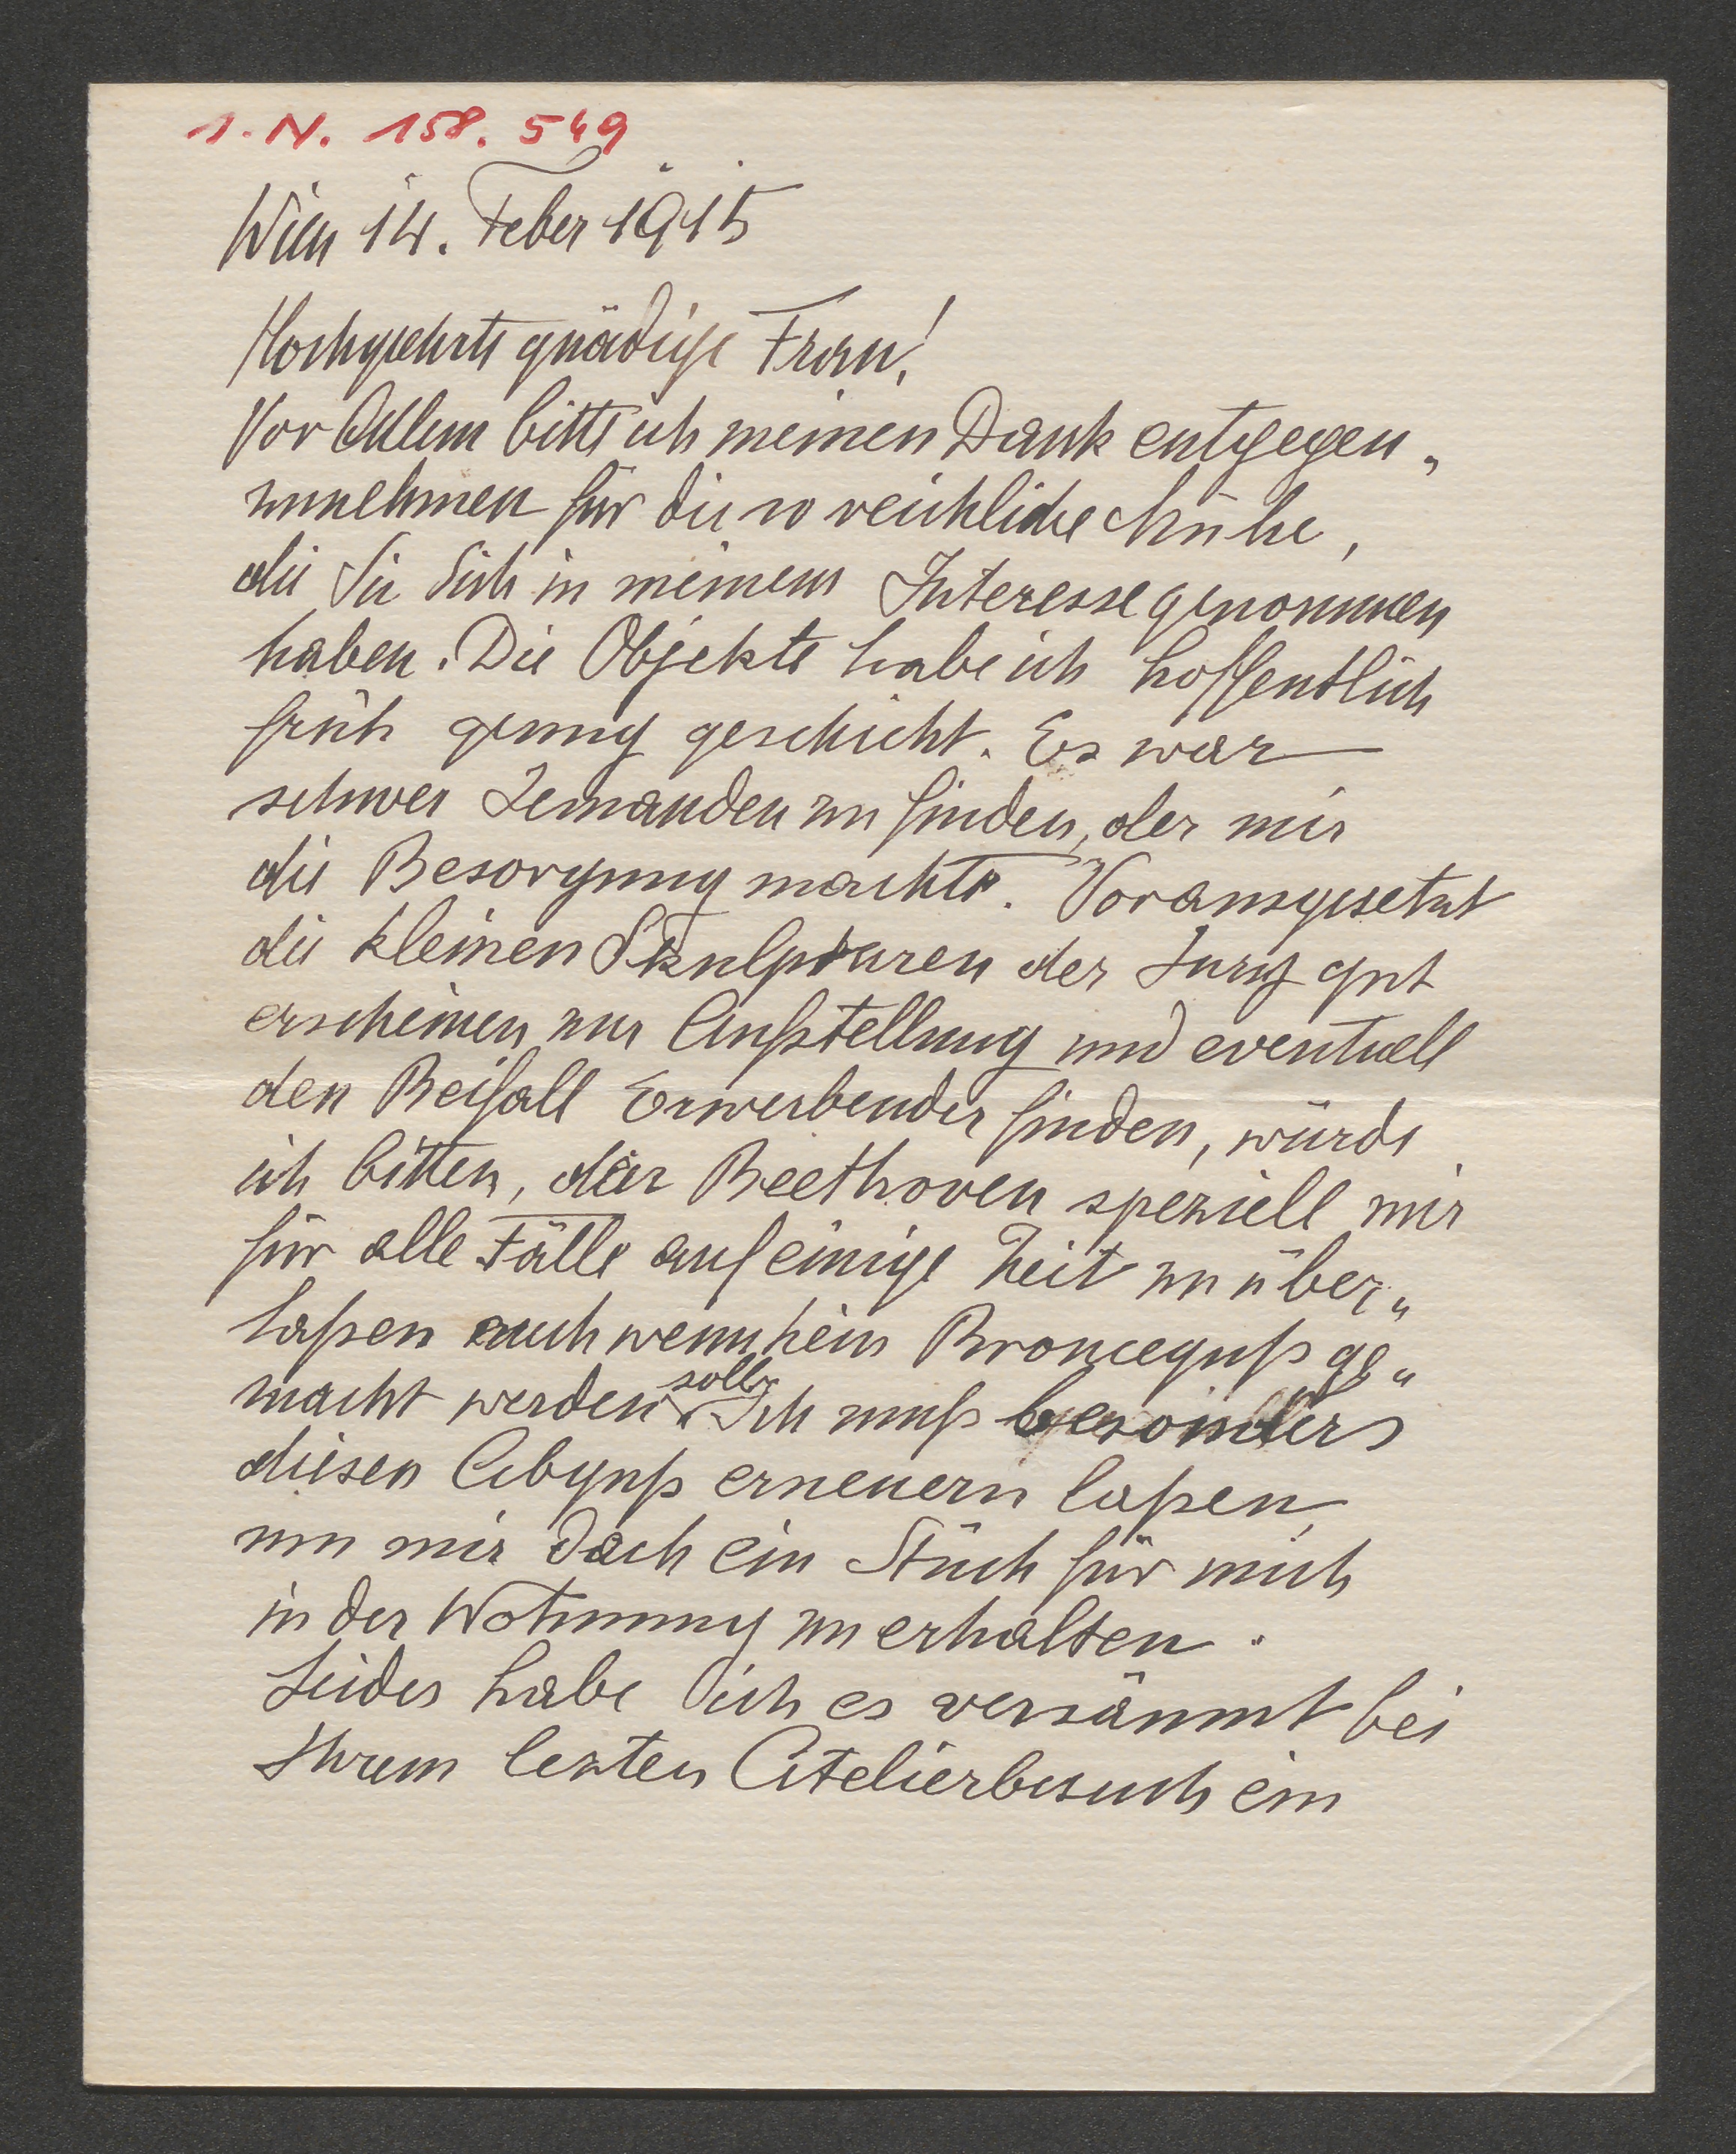 I. N. 158.549
Wien 14. Feber 1915
Hochgeehrte gnädige Frau!
Vor Allem bitte ich meinen Dank entgegen„
zunehmen für die so reichliche Mühe,
die Sie Sich in meinem Interesse genommen
haben. Die Objekte habe ich hoffentlich
früh genug geschickt. Es war
schwer Jemanden zu finden, der mir
die Besorgung machte. Vorausgesetzt
die kleinen Skulpturen der Jury gut
erscheinen zur Außtellung und eventuell
den Beifall Erwerbender finden, würde
ich bitten, der Beethoven speziell mir
für alle Fälle auf einige Zeit zu über„
laßen auch wenn kein Bronceguß ge„
macht werden soll. Ich muß besonders
diesen Abguß erneuern laßen,
um mir doch ein Stück für mich
in der Wohnung zu erhalten.
Leider habe ich es versäumt bei
Ihrem lezten Atelierbesuch ein